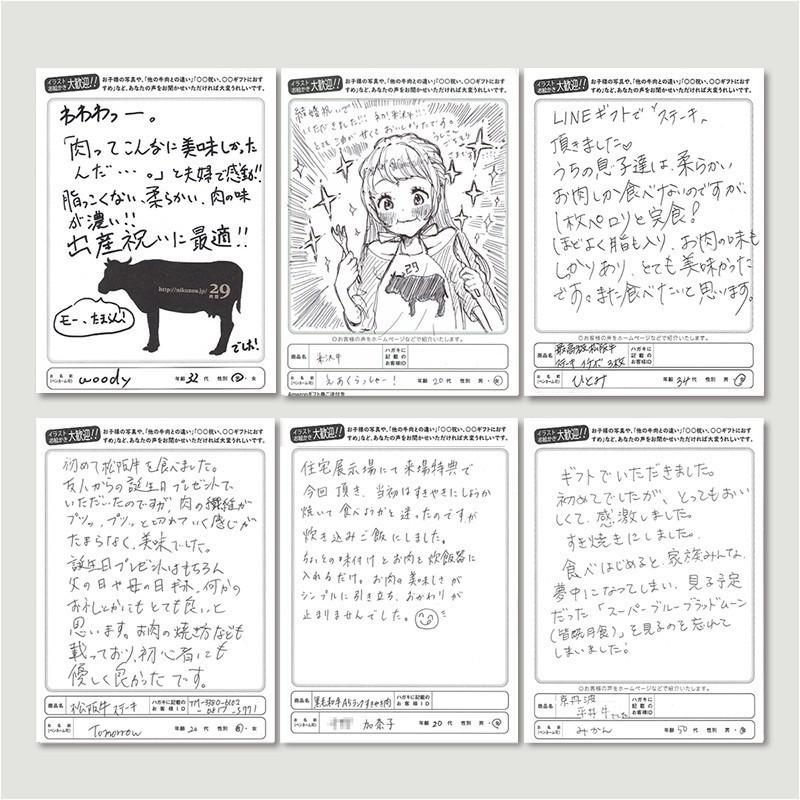 イラスト お絵かき 大歓迎!!
お子様の写真や、「他の牛肉との違い」「〇〇祝い、〇〇ギフトにおすすめ」など、あなたの声をお聞かせいただければ大変うれしいです。
わわわっー。
「肉ってこんなに美味しかった
んだ・・・。」と夫婦で感動!!
脂っこくない、柔らかい、肉の味
が濃い!!
出産祝いに最適!!
http://nikuzou.jp/ 29
モー、たまらん!
でしね!
お名前(ペンネーム可) woody 年齢 32代 性別 男・女
イラスト お絵かき 大歓迎!!
お子様の写真や、「他の牛肉との違い」「〇〇祝い、〇〇ギフトにおすすめ」など、あなたの声をお聞かせいただければ大変うれしいです。
結婚祝いで
いただきました!!!
とても油が甘くておいしかったです。
29
〇お客様の声をホームページなどで紹介いたします。
商品名 米沢牛 ハガキに記載のお客様ID
お名前(ペンネーム可) えあくらっしゃー! 年齢 20代 性別 男・女
イラスト お絵かき 大歓迎!!
お子様の写真や、「他の牛肉との違い」「〇〇祝い、〇〇ギフトにおすすめ」など、あなたの声をお聞かせいただければ大変うれしいです。
LINEギフトで"ステーキ"
頂きました♡
うちの息子達は、柔らかい
お肉しか食べないのですが、
1枚ペロリと完食!
ほどよく脂も入り、お肉の味も
しっかりあり、とても美味かった
です。また食べたいと思います。
〇お客様の声をホームページなどで紹介いたします。
商品名 最高級松阪牛 ステーキ イチボ 3枚 ハガキに記載のお客様ID
お名前(ペンネーム可) ひとみ 年齢 34代 性別 男・女
イラスト お絵かき 大歓迎!!
お子様の写真や、「他の牛肉との違い」「〇〇祝い、〇〇ギフトにおすすめ」など、あなたの声をお聞かせいただければ大変うれしいです。
初めて松阪牛を食べました。
友人からの誕生日プレゼントで
いただいたのですが、肉の繊維が
プツッ、プツッと切れていく感じが
たまらなく、美味でした。
誕生日プレゼントはもちろん
父の日や母の日ギフト、何かの
お礼とかにもとても良いと
思います。お肉の焼き方なども
載っており、初心者にも
優しく良かったです。
商品名 松阪牛ステーキ ハガキに記載のお客様ID
お名前(ペンネーム可) Tomorrow 年齢 20代 性別 男・女
イラスト お絵かき 大歓迎!!
お子様の写真や、「他の牛肉との違い」「〇〇祝い、〇〇ギフトにおすすめ」など、あなたの声をお聞かせいただければ大変うれしいです。
住宅展示場にて来場特典で
今回頂き、当初はすきやきにしようか
焼いて食べようかと迷ったのですが
炊き込みご飯にしました。
ちょっとの味付けとお肉を炊飯器に
入れるだけ。お肉の美味しさが
シンプルに引き立ち、おかわりが
止まりませんでした。
商品名 黒毛和牛A5ランクすきやき肉 ハガキに記載のお客様ID
お名前(ペンネーム可) 加奈子 年齢 20代 性別 男・女
イラスト お絵かき 大歓迎!!
お子様の写真や、「他の牛肉との違い」「〇〇祝い、〇〇ギフトにおすすめ」など、あなたの声をお聞かせいただければ大変うれしいです。
ギフトでいただきました。
初めてでしたが、とってもおいし
くて、感激しました。
すき焼きにしました。
食べはじめると、家族みんな、
夢中になってしまい、見る予定
だった「スーパーブルーブラッドムーン
(皆既月食)」を見るのを忘れて
しまいました!
〇お客様の声をホームページなどで紹介いたします。
商品名 京丹波 平井牛でした ハガキに記載のお客様ID
お名前(ペンネーム可) みかん 年齢 50代 性別 男・女